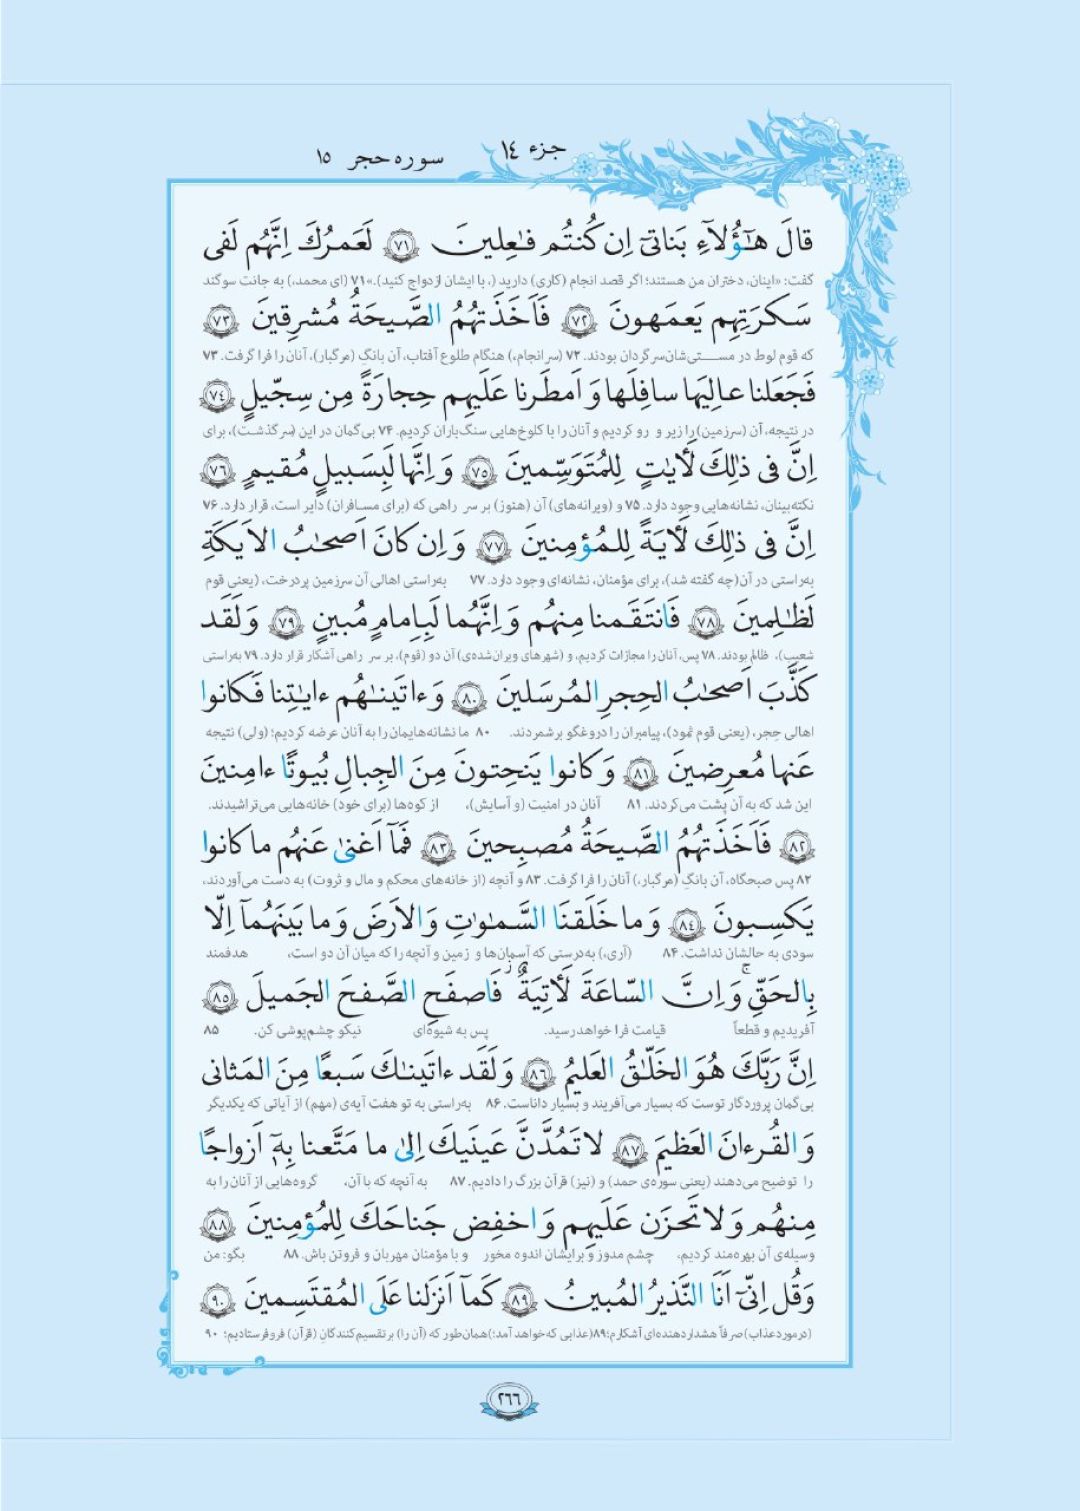 جزء ١٤
سوره حجر ١٥
قالَ هٰٓؤُلآءِ بَناتیٓ اِن کُنتُم فٰعِلینَ ﴿٧١﴾ لَعَمرُكَ اِنَّهُم لَفی
گفت: «اینان، دختران من هستند؛ اگر قصد انجام (کاری) دارید (، با ایشان ازدواج کنید).»۷۱ (ای محمد،) به جانت سوگند
سَکرَتِهِم یَعمَهونَ ﴿٧٢﴾ فَاَخَذَتهُمُ الصَّیحَةُ مُشرِقینَ ﴿٧٣﴾
که قوم لوط در مستی‌شان سرگردان بودند. ۷۲ (سرانجام،) هنگام طلوع آفتاب، آن بانگِ (مرگبار)، آنان را فرا گرفت. ۷۳
فَجَعَلنا عالِیَها سافِلَها وَ اَمطَرنا عَلَیهِم حِجارَةً مِن سِجّیلٍ ﴿٧٤﴾
در نتیجه، آن (سرزمین) را زیر و رو کردیم و آنان را با کلوخ‌هایی سنگ‌باران کردیم. ۷۴ بی‌گمان در این (سرگذشت)، برای
اِنَّ فی ذٰلِكَ لَأٓیاتٍ لِلمُتَوَسِّمینَ ﴿٧٥﴾ وَ اِنَّها لَبِسَبیلٍ مُقیمٍ ﴿٧٦﴾
نکته‌بینان، نشانه‌هایی وجود دارد. ۷۵ و (ویرانه‌های) آن (هنوز) بر سر راهی که (برای مسافران) دایر است، قرار دارد. ۷۶
اِنَّ فی ذٰلِكَ لَأٓیَةً لِلمُؤمِنینَ ﴿٧٧﴾ وَ اِن کانَ اَصحٰبُ الاَیکَةِ
به‌راستی در آن(چه گفته شد)، برای مؤمنان، نشانه‌ای وجود دارد. ۷۷ به‌راستی اهالی آن سرزمین پردرخت، (یعنی قوم
لَظٰلِمینَ ﴿٧٨﴾ فَانتَقَمنا مِنهُم وَ اِنَّهُما لَبِاِمامٍ مُبینٍ ﴿٧٩﴾ وَ لَقَد
شعیب)، ظالم بودند. ۷۸ پس، آنان را مجازات کردیم، و (شهرهای ویران‌شده‌ی) آن دو (قوم)، بر سر راهی آشکار قرار دارد. ۷۹ به‌راستی
کَذَّبَ اَصحٰبُ الحِجرِ المُرسَلینَ ﴿٨٠﴾ وَ ءاتَینٰهُم ءایٰتِنا فَکانوا
اهالی حِجر، (یعنی قوم ثمود)، پیامبران را دروغگو برشمردند. ۸۰ ما نشانه‌هایمان را به آنان عرضه کردیم؛ (ولی) نتیجه
عَنها مُعرِضینَ ﴿٨١﴾ وَ کانوا یَنحِتونَ مِنَ الجِبالِ بُیوتًا ءامِنینَ
این شد که به آن پشت می‌کردند. ۸۱ آنان در امنیت (و آسایش)، از کوه‌ها (برای خود) خانه‌هایی می‌تراشیدند.
﴿٨٢﴾ فَاَخَذَتهُمُ الصَّیحَةُ مُصبِحینَ ﴿٨٣﴾ فَمآ اَغنیٰ عَنهُم ما کانوا
۸۲ پس صبحگاه، آن بانگِ (مرگبار،) آنان را فرا گرفت. ۸۳ و آنچه (از خانه‌های محکم و مال و ثروت) به دست می‌آوردند،
یَکسِبونَ ﴿٨٤﴾ وَ ما خَلَقنَا السَّمٰوٰتِ وَ الاَرضَ وَ ما بَینَهُمآ اِلّا
سودی به حالشان نداشت. ۸۴ (آری،) به‌درستی که آسمان‌ها و زمین و آنچه را که میان آن دو است، هدفمند
بِالحَقِّ ۗ وَ اِنَّ السّاعَةَ لَأٓتِیَةٌ فَاصفَحِ الصَّفحَ الجَمیلَ ﴿٨٥﴾
آفریدیم و قطعاً قیامت فرا خواهد رسید. پس به شیوه‌ای نیکو چشم‌پوشی کن. ۸۵
اِنَّ رَبَّكَ هُوَ الخَلّٰقُ العَلیمُ ﴿٨٦﴾ وَ لَقَد ءاتَینٰكَ سَبعًا مِنَ المَثانی
بی‌گمان پروردگار توست که بسیار می‌آفریند و بسیار داناست. ۸۶ به‌راستی به تو هفت آیه‌ی (مهم) از آیاتی که یکدیگر
وَ القُرءانَ العَظیمَ ﴿٨٧﴾ لا تَمُدَّنَّ عَینَیكَ اِلیٰ ما مَتَّعنا بِهٖٓ اَزواجًا
را توضیح می‌دهند (یعنی سوره‌ی حمد) و (نیز) قرآن بزرگ را دادیم. ۸۷ به آنچه که با آن، گروه‌هایی از آنان را به
مِنهُم وَ لا تَحزَن عَلَیهِم وَ اخفِض جَناحَكَ لِلمُؤمِنینَ ﴿٨٨﴾
وسیله‌ی آن بهره‌مند کردیم، چشم مدوز و برایشان اندوه مخور و با مؤمنان مهربان و فروتن باش. ۸۸ بگو: من
وَ قُل اِنّیٓ اَنَا النَّذیرُ المُبینُ ﴿٨٩﴾ کَمآ اَنزَلنا عَلَی المُقتَسِمینَ ﴿٩٠﴾
(در مورد عذاب) صرفاً هشداردهنده‌ای آشکارم؛۸۹(عذابی که خواهد آمد؛) همان‌طور که (آن را) بر تقسیم‌کنندگانِ (قرآن) فرو فرستادیم؛ ۹۰
٢٦٦